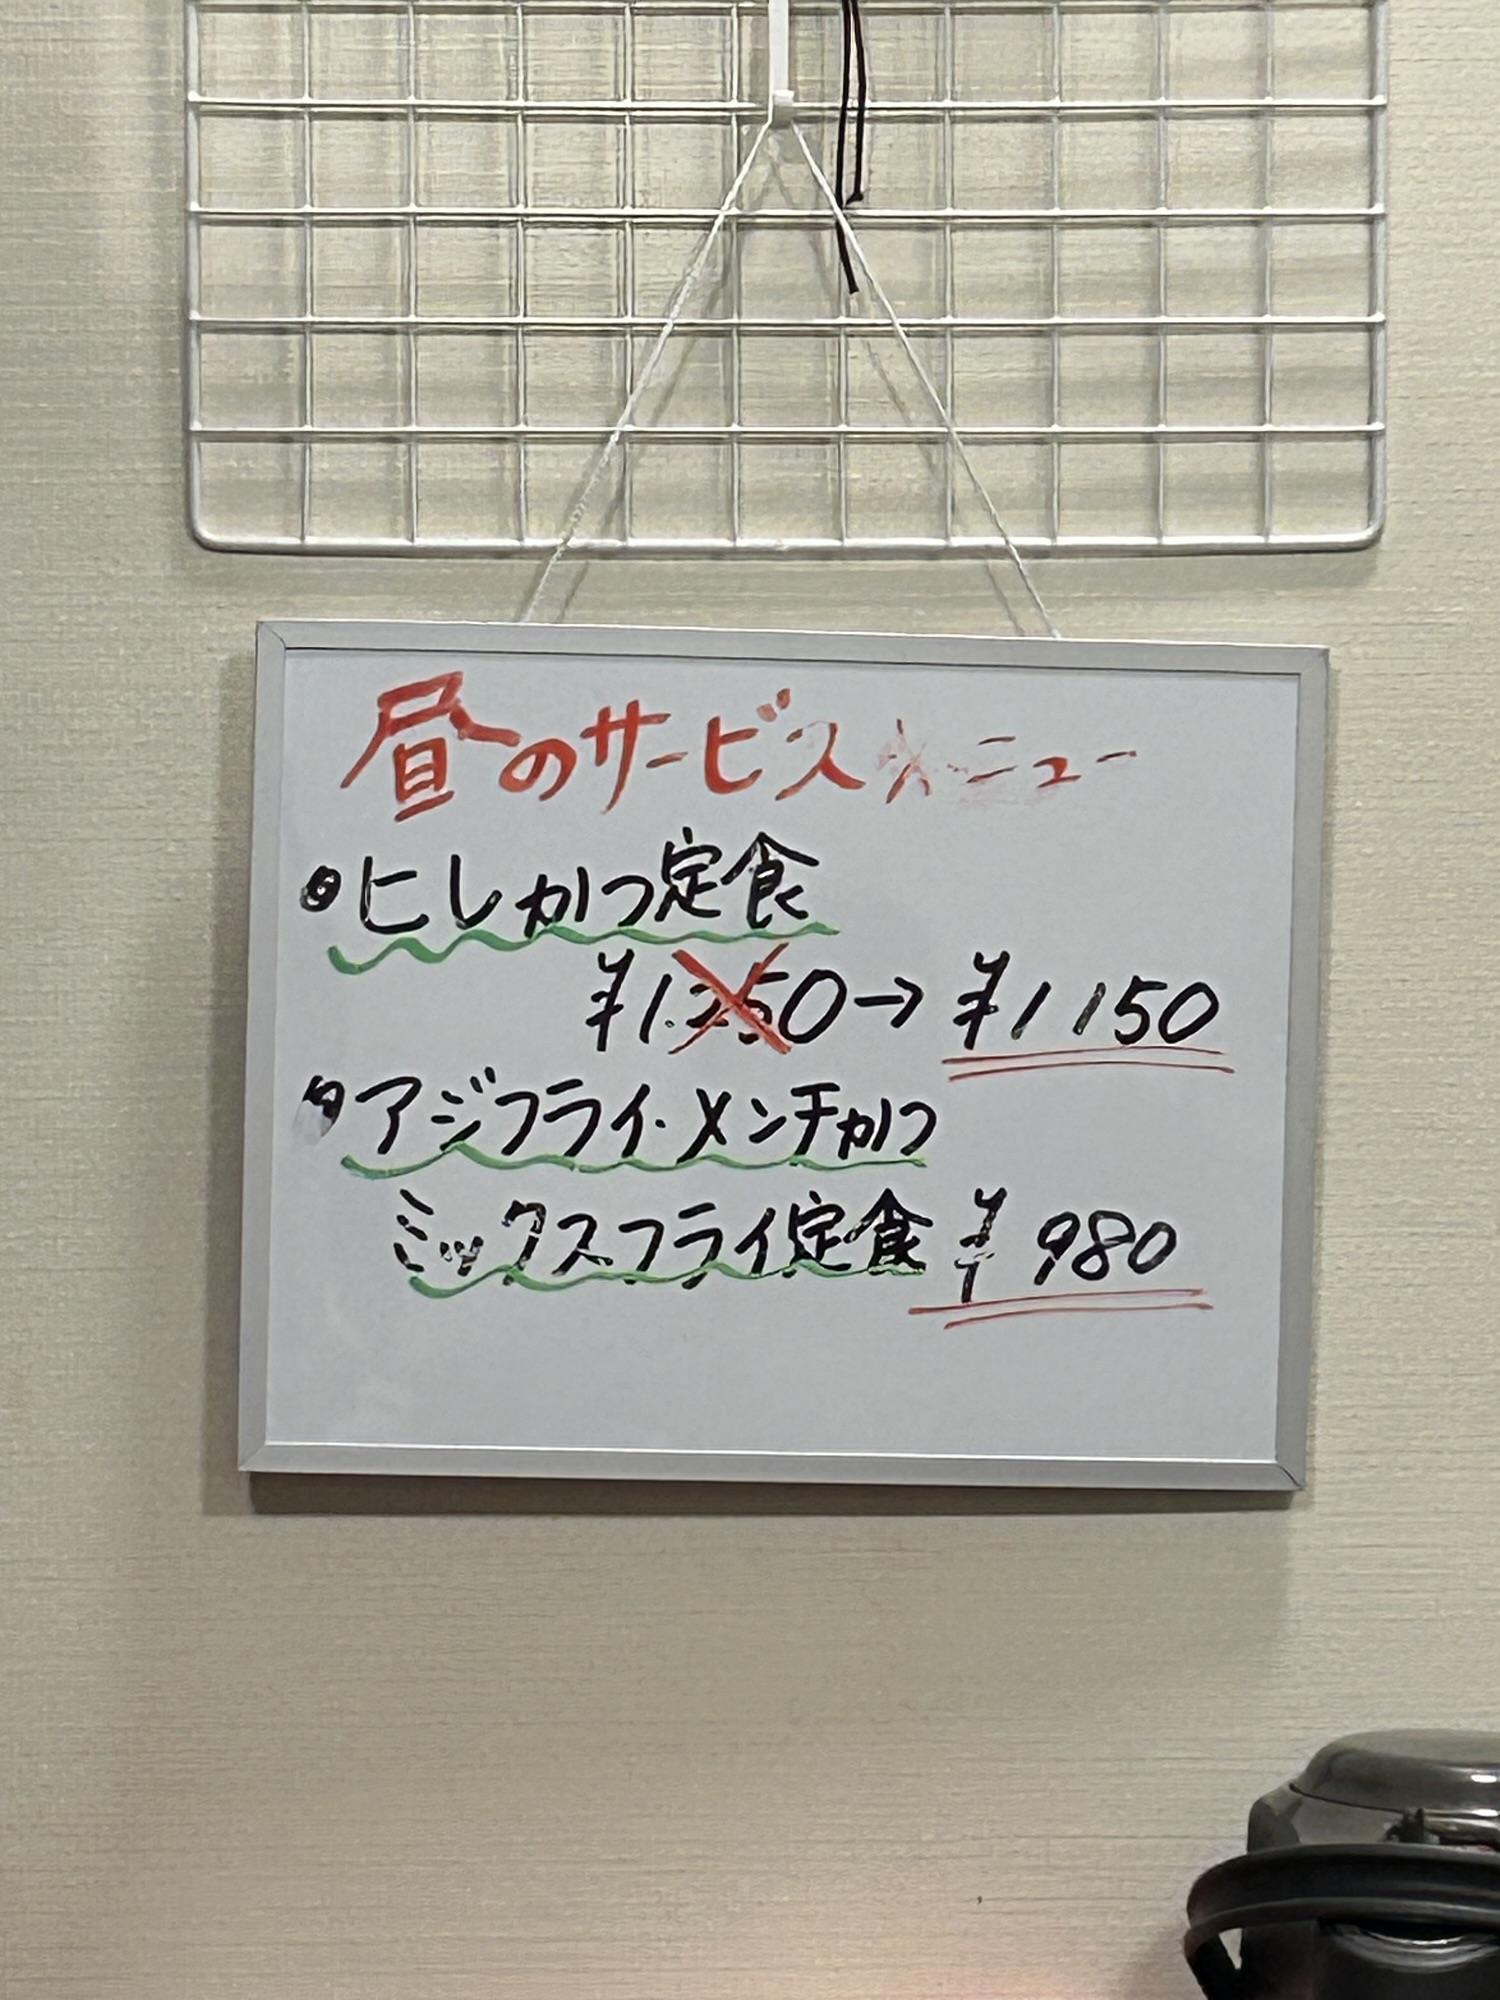 昼のサービスメニュー
●ヒレかつ定食
¥1.350→¥1150
●アジフライ・メンチかつ
ミックスフライ定食 ¥980